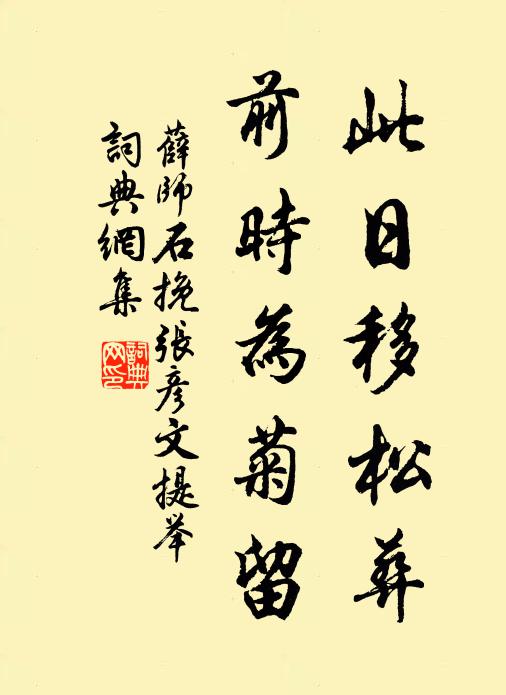 此日移松葬
前時為菊留
薛師石挽張彥文提举
詞典網集
詞典网印